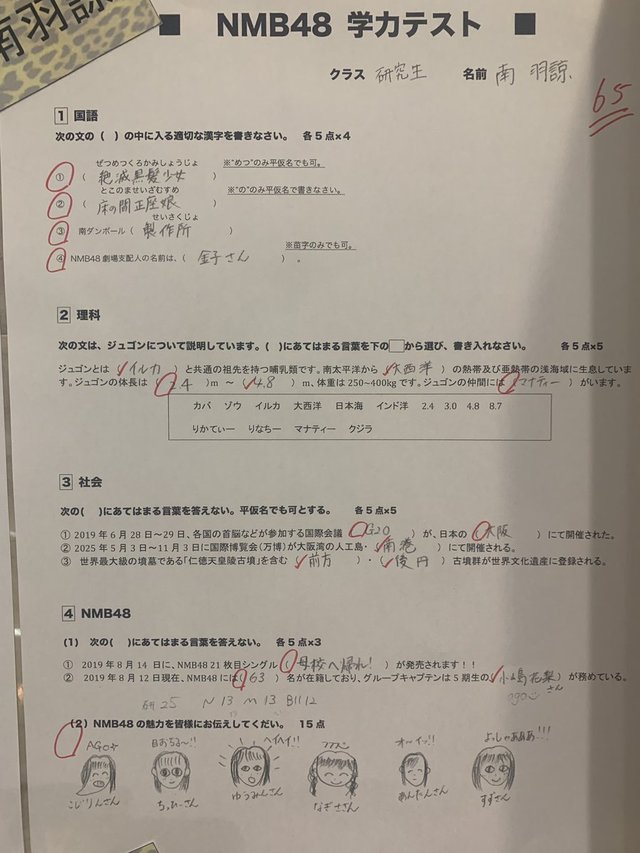 南羽諒
■ NMB48 学力テスト ■
クラス 研究生 名前 南 羽諒
65
1 国語
次の文の（ ）の中に入る適切な漢字を書きなさい。 各5点×4
ぜつめつくろかみしょうじょ ※“めつ”のみ平仮名でも可。
①（ 絶滅黒髪少女 ）
とこのませいざむすめ ※“の”のみ平仮名で書きなさい。
②（ 床の間正座娘 ）
せいさくじょ
③ 南ダンボール（ 製作所 ）
※苗字のみでも可。
④ NMB48劇場支配人の名前は、（ 金子さん ）。
2 理科
次の文は、ジュゴンについて説明しています。（ ）にあてはまる言葉を下の□から選び、書き入れなさい。 各5点×5
ジュゴンとは（ イルカ ）と共通の祖先を持つ哺乳類です。南太平洋から（ 大西洋 ）の熱帯及び亜熱帯の浅海域に生息していま
す。ジュゴンの体長は（ 2.4 ）m ～（ 4.8 ）m、体重は250~400kgです。ジュゴンの仲間には（ マナティー ）がいます。
カバ ゾウ イルカ 大西洋 日本海 インド洋 2.4 3.0 4.8 8.7
りかてぃー りなちー マナティー クジラ
3 社会
次の（ ）にあてはまる言葉を答えない。平仮名でも可とする。 各5点×5
① 2019年6月28日～29日、各国の首脳などが参加する国際会議（ G20 ）が、日本の（ 大阪 ）にて開催された。
② 2025年5月3日～11月3日に国際博覧会（万博）が大阪湾の人工島・（ 南港 ）にて開催される。
③ 世界最大級の墳墓である「仁徳天皇陵古墳」を含む（ 前方 ）・（ 後円 ）古墳群が世界文化遺産に登録される。
4 NMB48
(1) 次の（ ）にあてはまる言葉を答えない。 各5点×3
① 2019年8月14日に、NMB48 21枚目シングル（ 母校へ帰れ! ）が発売されます！！
② 2019年8月12日現在、NMB48には（ 63 ）名が在籍しており、グループキャプテンは5期生の（ 小嶋花梨さん ）が務めている。
研25 N13 M13 BII12 ago
(2) NMB48の魅力を皆様にお伝えしてくだい。 15点
AGO 目おちる~!! ヘイヘイ!! フフフン オーイッ!! よっしゃあああ!!!
こじりんさん ちっひーさん ゆうみんさん なぎささん あんたんさん すずさん